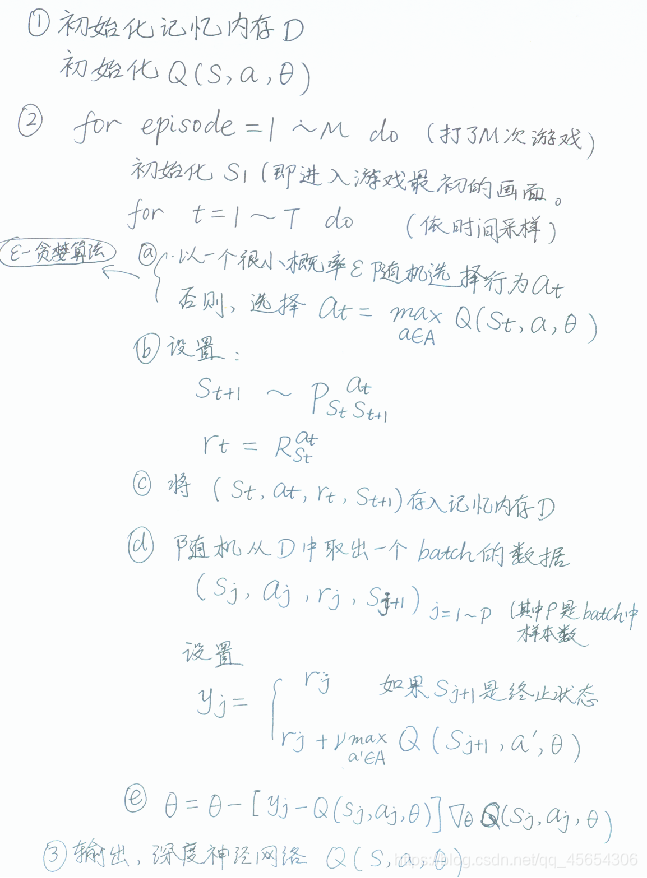 ① 初始化记忆内存D
初始化 Q(S, a, θ)
② for episode = 1 ~ M do (打了M次游戏)
初始化 S1 (即进入游戏最初的画面。
for t = 1 ~ T do (依时间采样)
ε-贪婪算法 ⓐ 以一个很小概率ε随机选择行为at
否则, 选择 at = max a∈A Q(St, a, θ)
ⓑ 设置:
St+1 ~ P St St+1 at
rt = R St at
ⓒ 将 (St, at, rt, St+1)存入记忆内存D
ⓓ 随机从D中取出一个 batch的数据
(Sj, aj, rj, Sj+1) j=1~P (其中P是batch中
样本数
设置
yj = { rj 如果Sj+1是终止状态
rj + γ max a'∈A Q (Sj+1, a', θ)
ⓔ θ = θ - [yj - Q(Sj, aj, θ)] ∇θ Q(Sj, aj, θ)
③ 输出, 深度神经网络 Q(S, a, θ)
https://blog.csdn.net/qq_45654306